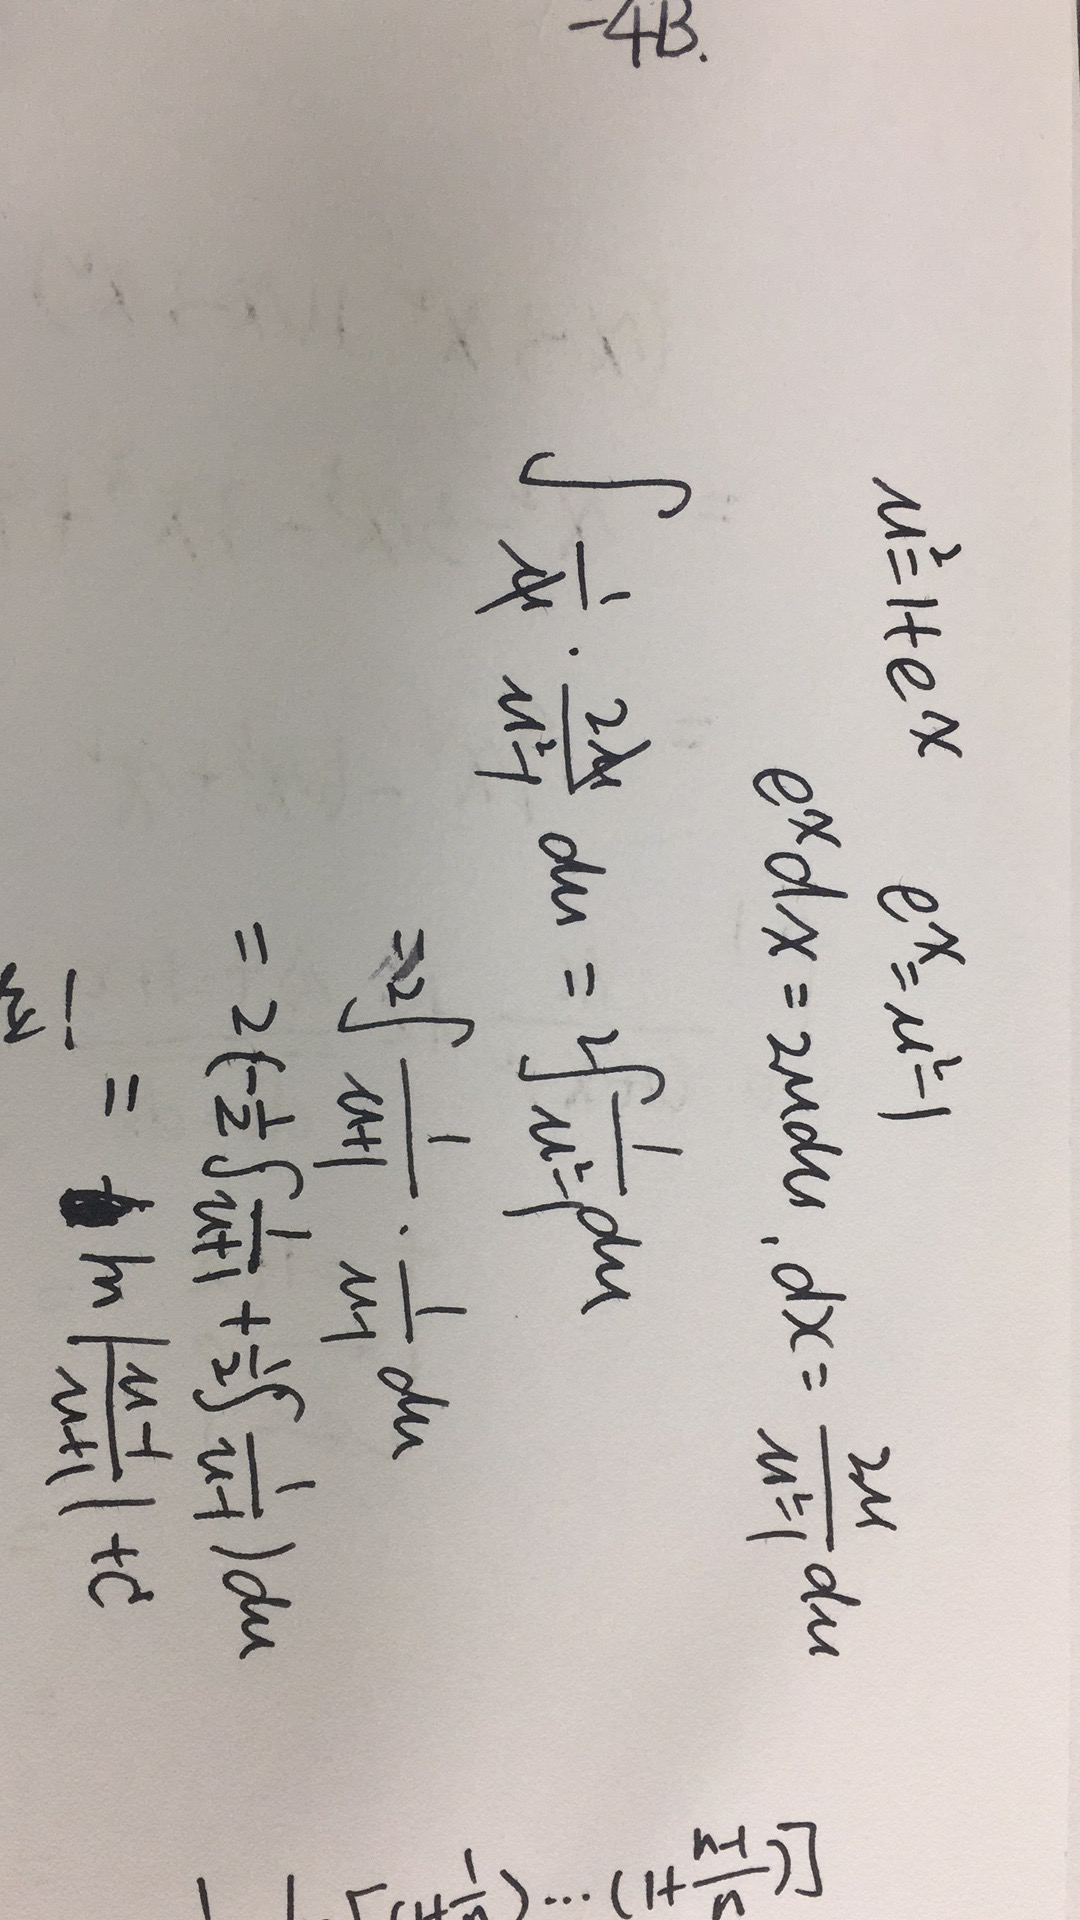 u²=1+eˣ eˣ=u²-1
eˣdx=2udu, dx=2u/(u²-1) du
∫ 1/u · 2u/(u²-1) du = 2∫ 1/(u²-1) du
=2∫ 1/(u+1) · 1/(u-1) du
= 2(-1/2 ∫ 1/(u+1) + 1/2 ∫ 1/(u-1)) du
= ln |(u-1)/(u+1)| + C
-4B.